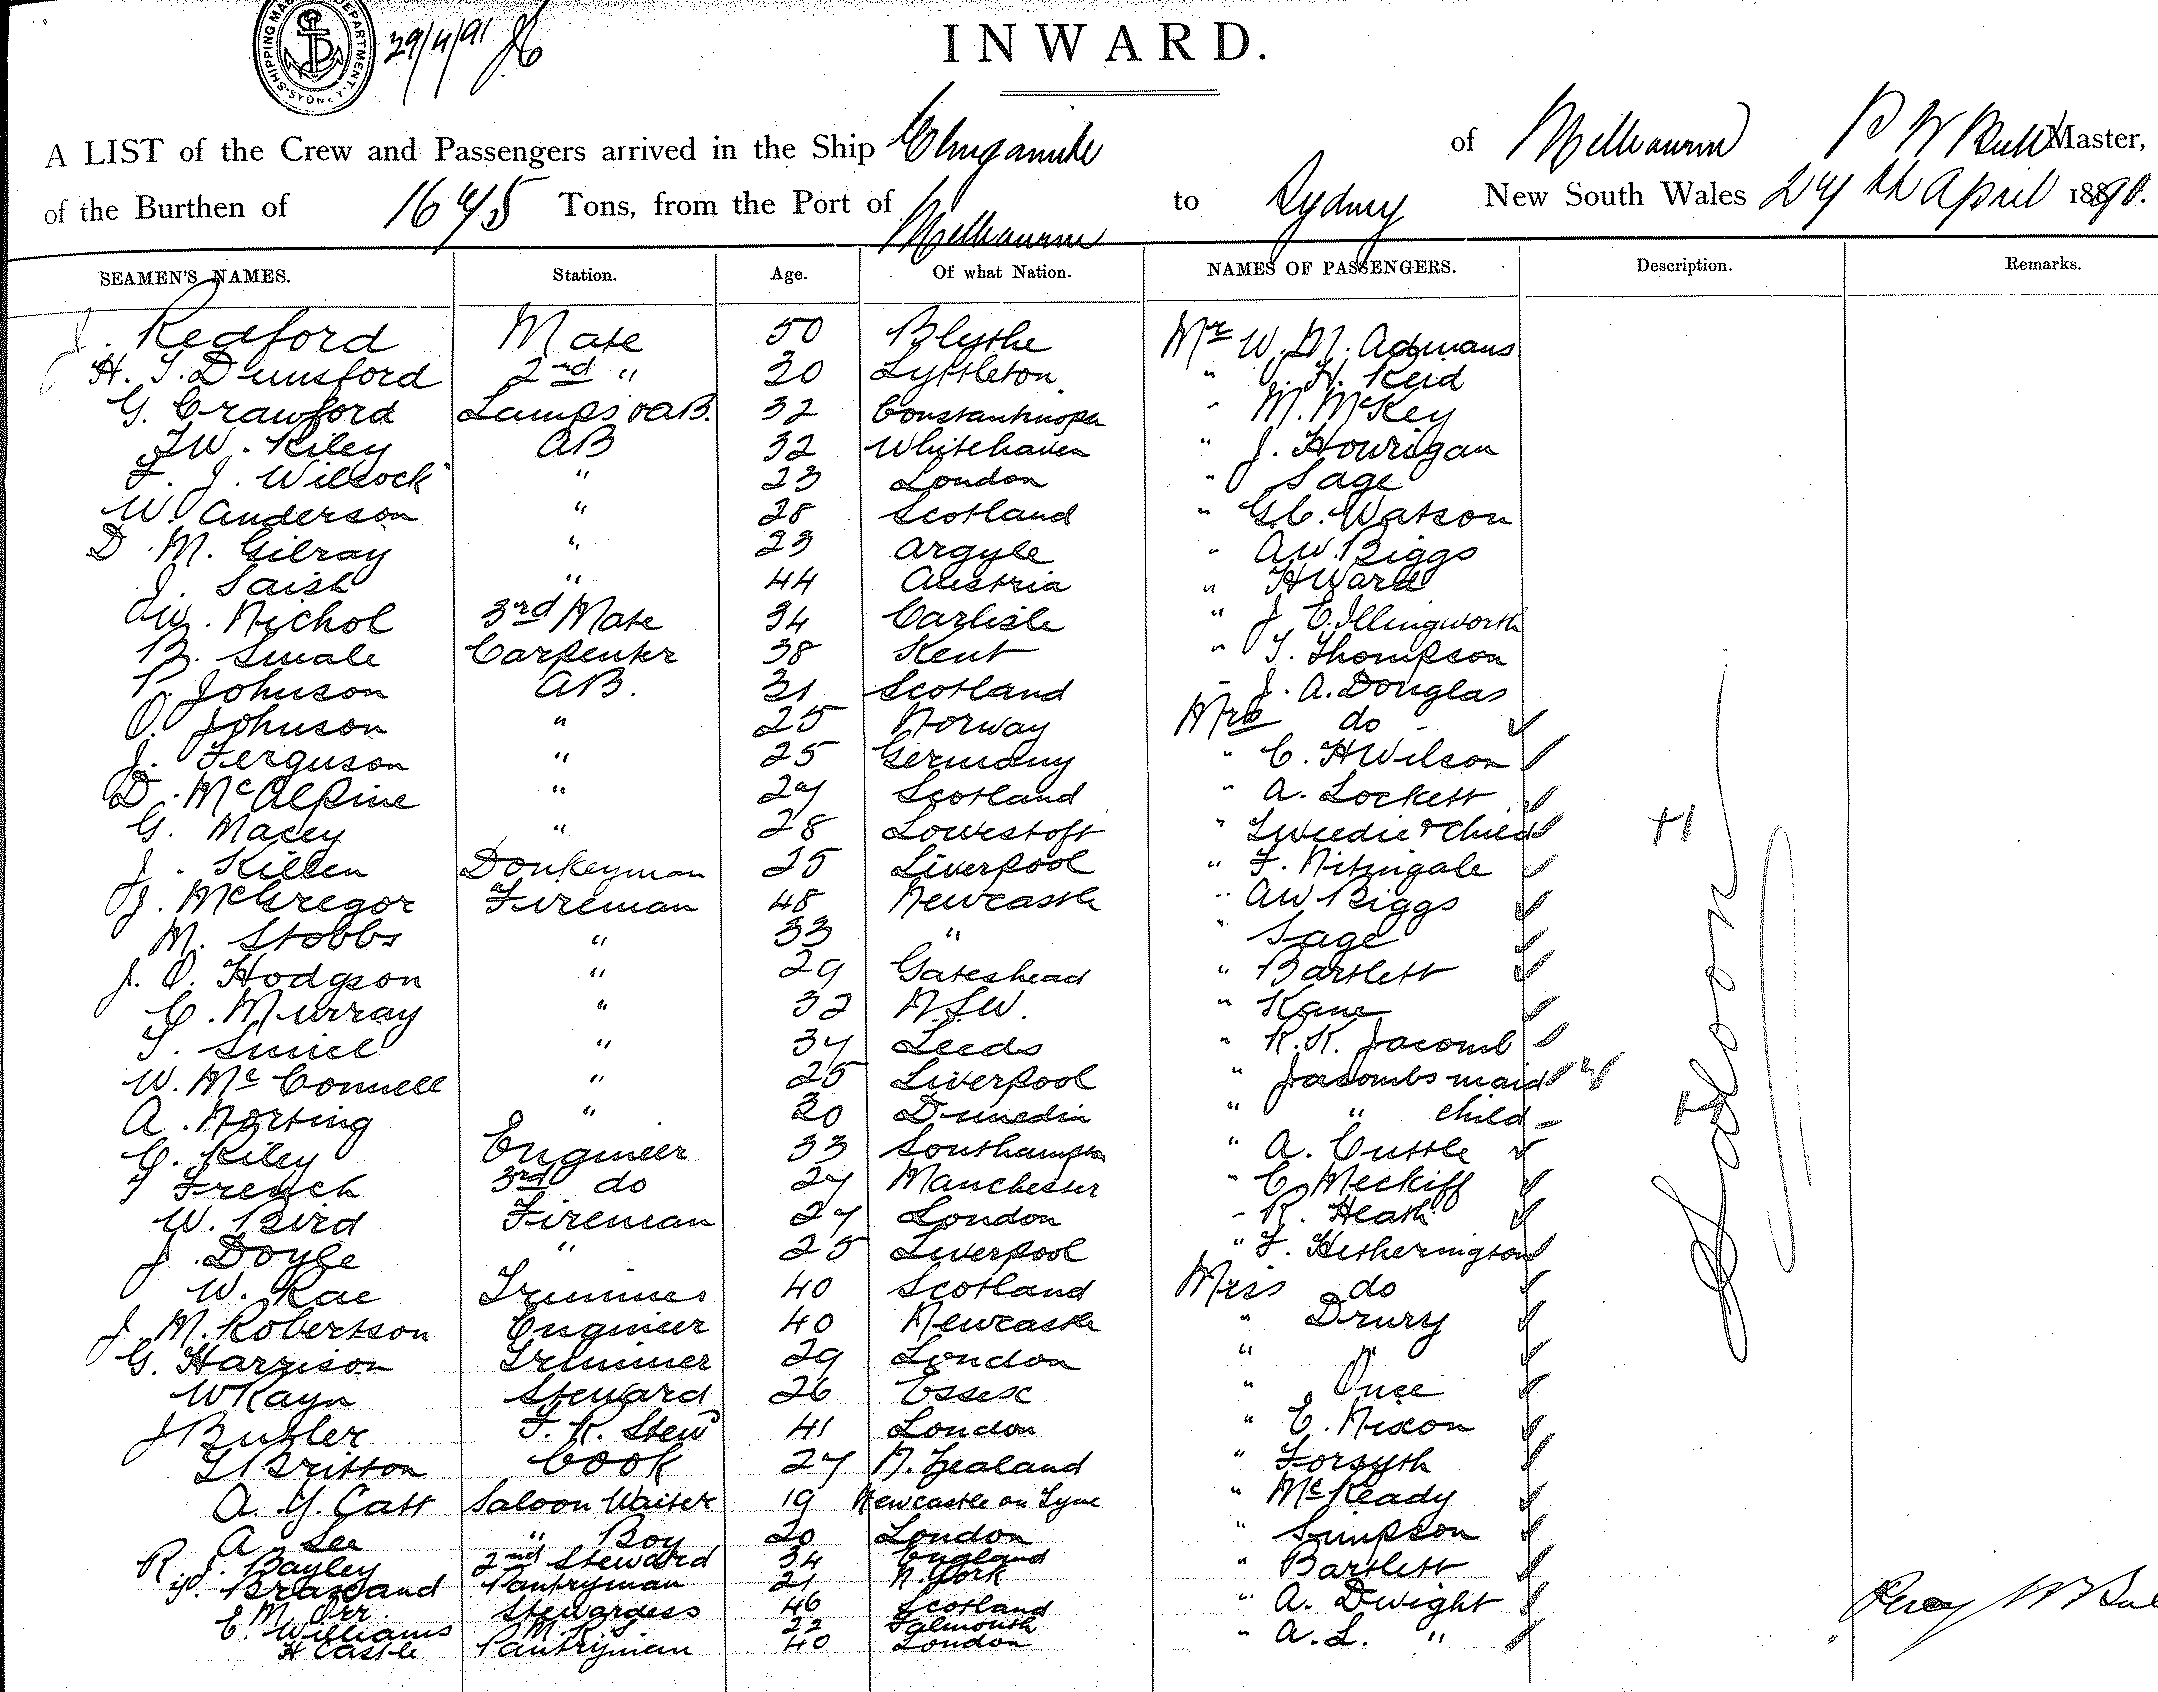 SHIPPING MA DEPARTMENT. SYDNEY
29/4/91
INWARD.
A LIST of the Crew and Passengers arrived in the Ship Elingamite of Melbourne P W Bull Master,
of the Burthen of 1675 Tons, from the Port of Melbourne to Sydney New South Wales 27th April 1890.
SEAMEN'S NAMES. Station. Age. Of what Nation. NAMES OF PASSENGERS. Description. Remarks.
J. Redford Mate 50 Blythe Mr W. M. Admans
H. T. Dunsford 2nd " 30 Lyttleton " J. H. Reid
G. Crawford Lamps & AB. 32 Constantinople " M. McKey
J W. Riley AB 32 Whitehaven " J. Hourigan
F. J. Wilcock " 23 London " Sage
W. Anderson " 28 Scotland " G C. Watson
D. M. Gilray " 23 Argyle " A W. Biggs
J. Saish " 44 Austria " H Ward
A W. Nichol 3rd Mate 34 Carlisle " J. C. Illingworth
B. Smale Carpenter 38 Kent " T. Thompson
P. Johnson AB. 31 Scotland " J. A. Douglas
O. Johnson " 25 Norway Mrs do
J. Ferguson " 25 Germany " C. H Wilson
D. McAlpine " 27 Scotland " A. Lockett
G. Macey " 28 Lowestoft " Tweedie & Child
J. Killen Donkeyman 25 Liverpool " F. Nitzingale
J. McGregor Fireman 48 Newcastle " A W Biggs
M. Stobbs " 33 " " Sage
J. O. Hodgson " 29 Gateshead " Bartlett
C. Murray " 32 N.S.W. " Kane
T. " 37 Leeds " R. R. Jacomb
W. McConnell " 25 Liverpool " Jacombs maid
A. Norting " 30 Dunedin " " child
G. Riley Engineer 33 Southampton " A. Cuttle
T French 3rd do 27 Manchester " C. Meckiff
W. Bird Fireman 27 London " R. Heath
J. Doyle " 25 Liverpool " F. Hetherington
W. Rae Trimmer 40 Scotland Miss do
J. M. Robertson Engineer 40 Newcastle " Drury
G. Harrison Trimmer 29 London "
W Kayn Steward 26 Essex "
J Butler F. R. Stew 41 London " E. Nixon
T Britton Cook 27 N. Zealand " Forsyth
A. G. Catt Saloon Waiter 19 Newcastle on Tyne " McKeady
A. Lee " Boy 20 London " Simpson
R. J. Bayley 2nd Steward 34 England " Bartlett
Pantryman 21 N. York " A. Dwight
M. Orr Stewardess 46 Scotland " A. L. "
C. Williams 22 Falmouth
H Castle Pantryman 40 London
Saloon
Percy W Bull